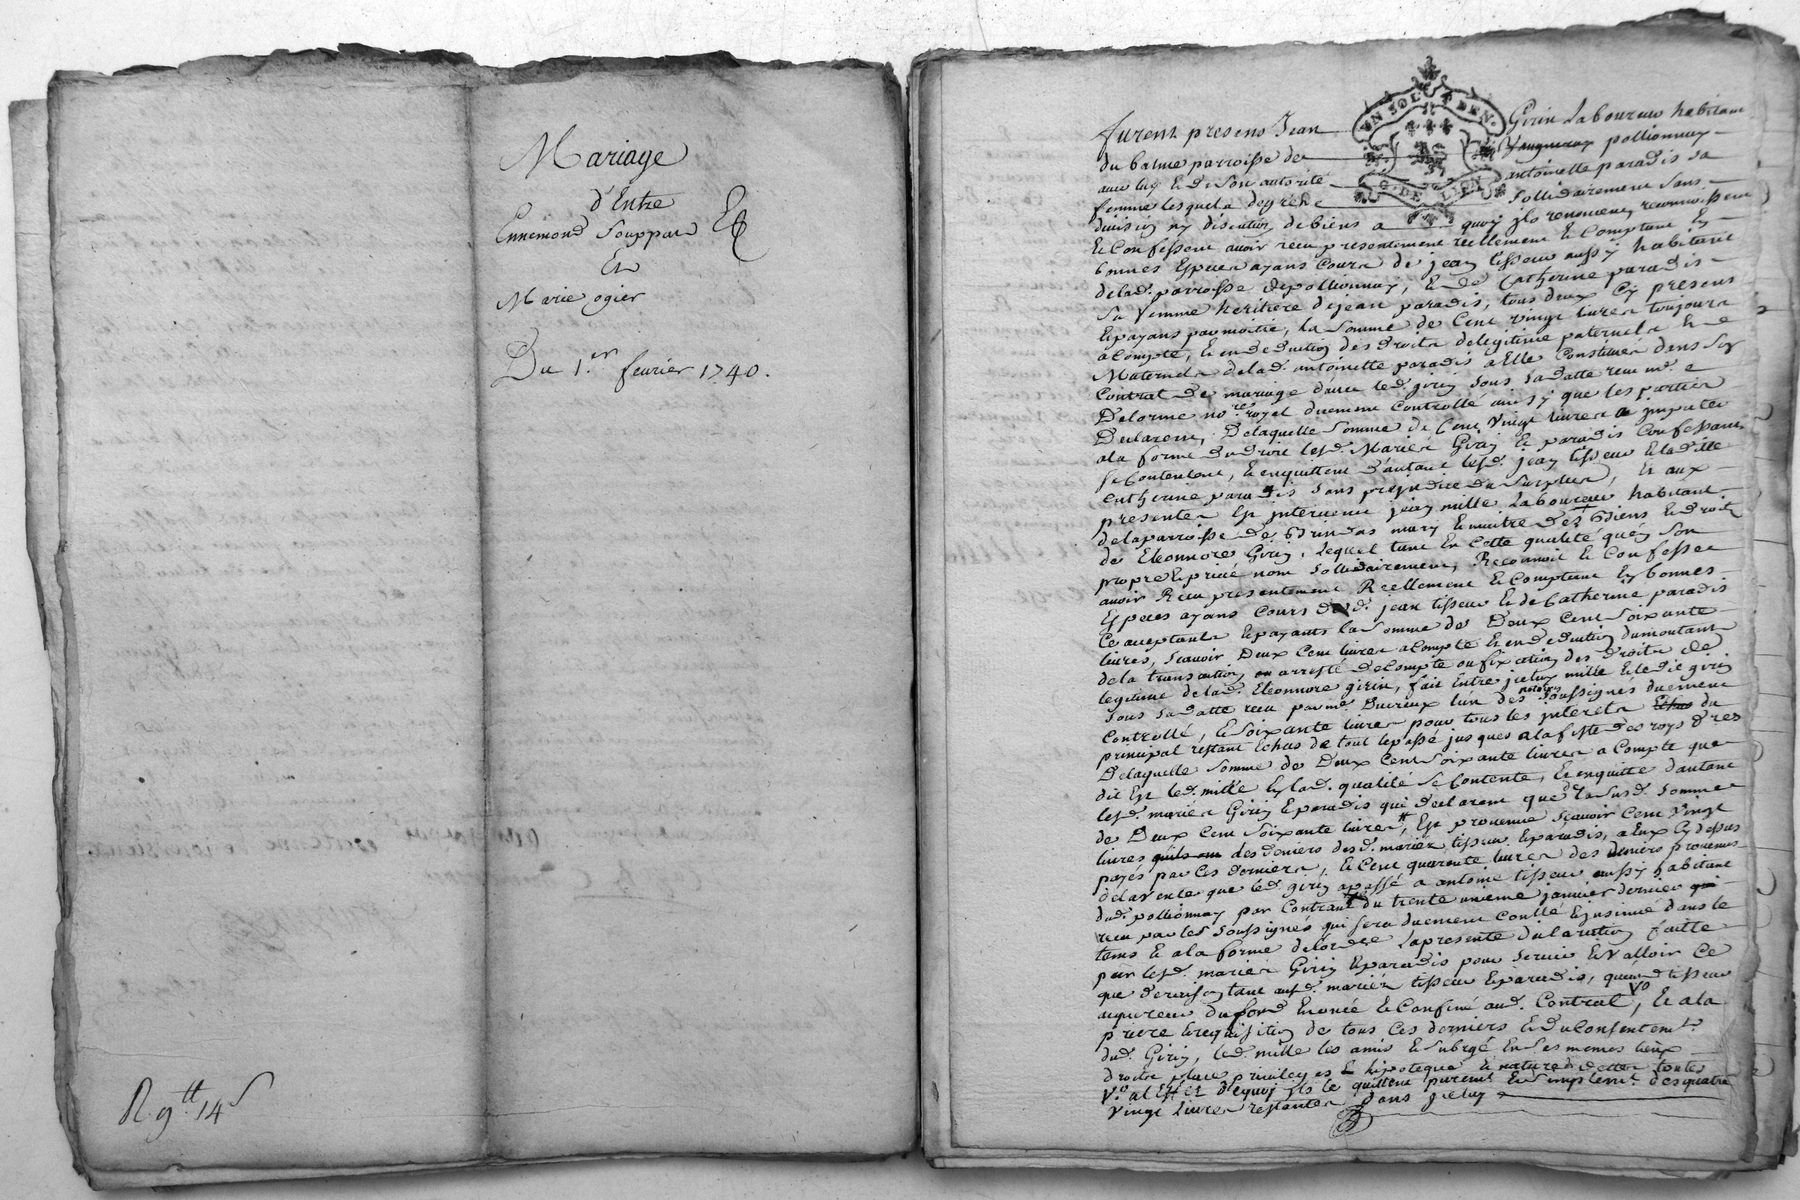 Mariage
d'Entre
Ennemond Souppat Et
Et
Marie ogier
Du 1.er fevrier 1740.
R 9tt 14s
UN SOL 4 DEN.
G. DE LION
furent presens Jean Girin Laboureur habitant
du balme parroisse de Vaugneray pollionnay
antoinette paradis sa
femme lesquels solidairement sans
division ny discution de biens a quoy ils renoncent, reconnoissent
Et Confessent avoir reçu presentement reellement Et Comptant En
bonnes Especes ayans Cours de jean tisseur aussy habitant
de lad. parroisse de pollionnay, Et de Catherine paradis
Sa femme heritiere de jean paradis, tous deux Cy presens
Et payans par moitié, La Somme de Cent vingt livres toujours
a Compte, Et en deduction des droits de legitime paternels Et
Maternels de lad. antoinette paradis a Elle Constitués dans son
Contrat de mariage d'avec led. girin sous sa datte reçu me
Delorme nore royal duement Controllé ainsy que les parties
Declarent, De laquelle Somme de Cent Vingt livres a imputer
a la forme du droit lesd. Mariés Girin Et paradis Confessans
se Contentent, Et en quittent d'autant lesd. jean tisseur Et ladite
Catherine paradis Sans prejudice du Surplus, Et aux
presentes Est intervenu jean mille Laboureur habitant
de la parroisse de Brindas mary Et maitre des biens Et droits
de Eleonnore Girin, Lequel tant En Cette qualité qu'en Son
propre Et privé nom Sollidairement, Reconnoit Et Confesse
avoir Reçu presentement Reellement Et Comptant En bonnes
Especes ayans Cours desd. jean tisseur Et de Catherine paradis
Ce acceptants Et payants la Somme de Deux Cent Soixante
livres, Scavoir Deux Cent livres a Compte Et en deduction du montant
de la transaction ou arresté de Compte ou fixation des droits de
legitime de lad. Eleonnore girin, fait Entre jceluy mille Et ledit girin
Sous Sa Datte reçu par me Ducreux l'un des notaires soussignés duement
Controllé, Et Soixante livres pour tous les jnterets Echus du
principal restant Echus de tout le passé jusques a la feste des roys dres
De laquelle Somme de Deux Cent Soixante livres a Compte que
dit Est led. mille En lad. qualité Se Contente, Et en quitte d'autant
lesd. mariés Girin Et paradis qui declarent que de la Susd. Somme
de Deux Cent Soixante livres, Est provenue Scavoir Cent Vingt
livres des deniers desd. mariés tisseur Et paradis, a Eux Cy dessus
payés par Ces derniers, Et Cent quarante livres des deniers provenus
de la vente que led. girin a passé a antoine tisseur aussy habitant
dud. pollionnay par Contrat du trente unieme janvier dernier
reçu par les Soussignés qui sera duement conllé Et insinué dans le
tems Et a la forme de l'ordce La presente Declaration faitte
par lesd. mariés Girin Et paradis pour Servir Et Valloir Ce
que de raison tant ausd. mariés tisseur Et paradis, qu'aud. tisseur
acquereur du fond Enoncé Et Confiné aud. Contrat, Et a la
priere Et requisition de tous Ces derniers Et du Consentemt
dud. Girin, led. mille les a mis Et Subrogé En Ses memes lieux
droits place privileges Et hipoteque
Vo. al Effet De quoy ils le quittent puremt Et Simplemt des quatre
Vingt Livres restantes Dans jceluy